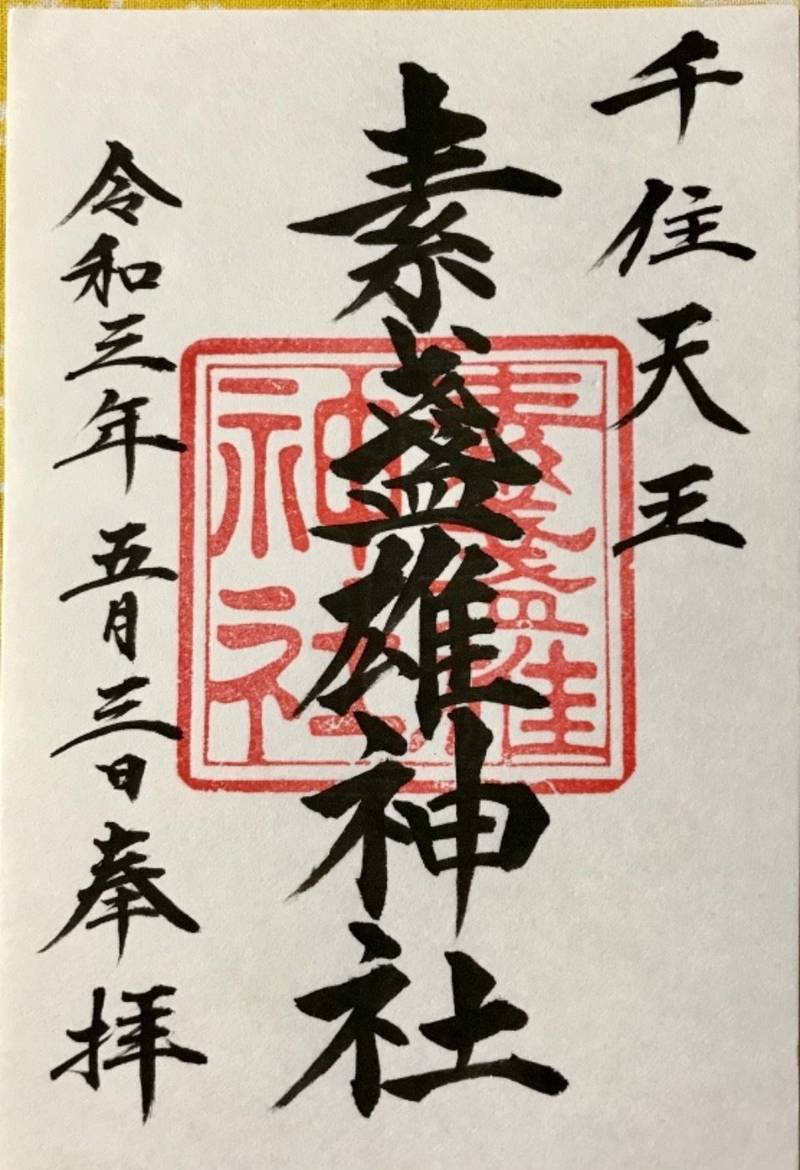 千住天王
素盞雄神社
素盞雄神社
令和三年五月三日奉拝